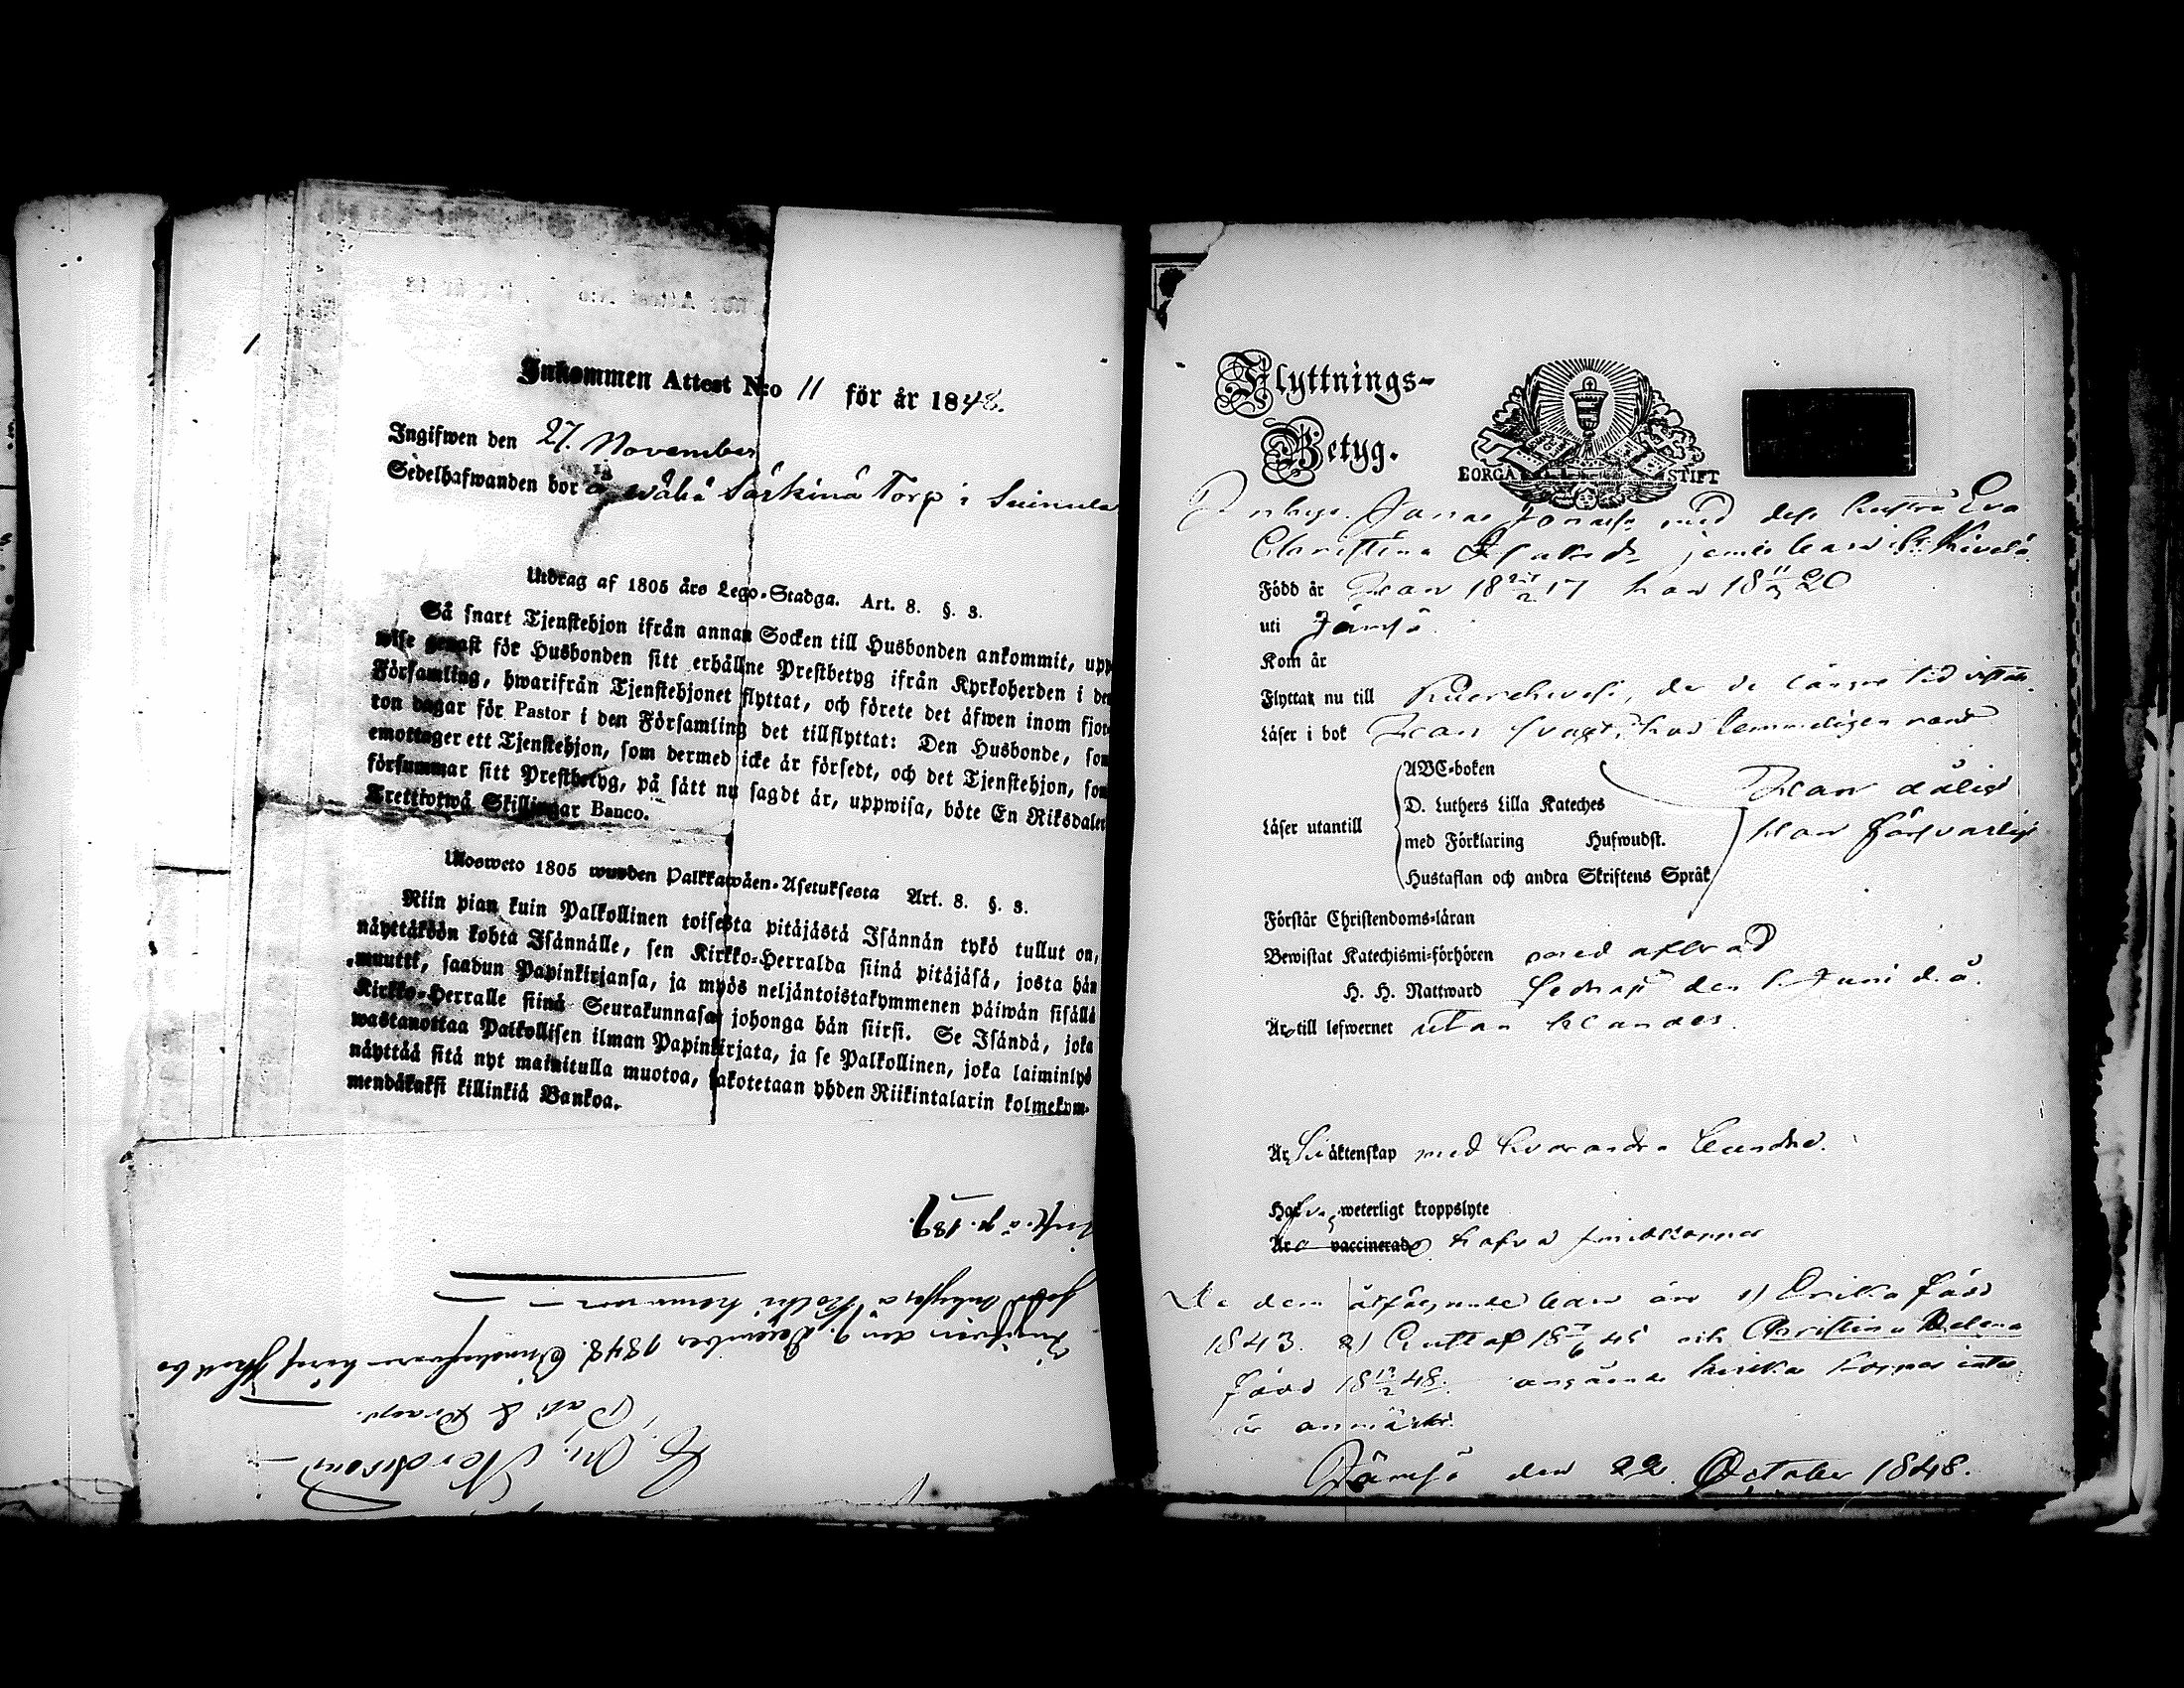 Inkommen Attest N:o 11 för år 1848.
Ingifwen den 27. November
Sedelhafwanden bor å Wähä Särkinä Torp i Suinula
Utdrag af 1805 års Lego-Stadga. Art. 8. §. 3.
Så snart Tjenstehjon ifrån annan Socken till Husbonden ankommit, upp
wise genast för Husbonden sitt erhållne Prestbetyg ifrån Kyrkoherden i den
Församling, hwarifrån Tjenstehjonet flyttat, och förete det äfwen inom fjor
ton dagar för Pastor i den Församling det tillflyttat: Den Husbonde, som
emottager ett Tjenstehjon, som dermed icke är försedt, och det Tjenstehjon, som
försummar sitt Prestbetyg, på sätt nu sagdt är, uppwisa, böte En Riksdaler
Trettiotwå Skillingar Banco.
Ulosweto 1805 wuoden Palkkawäen-Asetuksesta Art. 8. §. 3.
Niin pian kuin Palkollinen toisesta pitäjästä Isännän tykö tullut on,
näyttäköön kohta Isännälle, sen Kirkko-Herralda siinä pitäjäsä, josta hän
muutti, saadun Papinkirjansa, ja myös neljäntoistakymmenen päiwän sisällä
Kirkko-Herralle siinä Seurakunnasa, johonga hän siirsi. Se Isändä, joka
wastanottaa Palkollisen ilman Papinkirjata, ja se Palkollinen, joka laiminlyö
näyttää sitä nyt mainitulla muotoa, sakotetaan yhden Riikintalarin kolmekym-
mendäkaksi killinkiä Bankoa.
å p. 189.
Ingifven den 9. December 1848.
Flyttnings-
Betyg.
BORGÅ STIFT
Jonas med dess hustru Eva
Christina jemte barn
Född år Han 18 17 hon 18 20
uti Jämsä
Kom år
Flyttat nu till Kuorehvesi, der de längre tid vistats.
Läser i bok Han svagt, hon
Läser utantill
ABC-boken
D. Luthers Lilla Kateches
med Förklaring Hufwudst.
Hustaflan och andra Skriftens Språk
Han dåligt
Hon försvarligt
Förstår Christendoms-läran
Bewistat Katechismi-förhören med
H. H. Nattward sednast den Juni d. å.
Är till lefwernet utan klander.
Är äktenskap med hvarandra
weterligt kroppslyte
Är vaccinerade hafva
De dem åtföljande barn äro 1) Erika född
1843. 2) Gustaf 18 45 och Christina Helena
född 18 48. angående koppor intet
är anmärkt.
Jämsä den 22 October 1848.